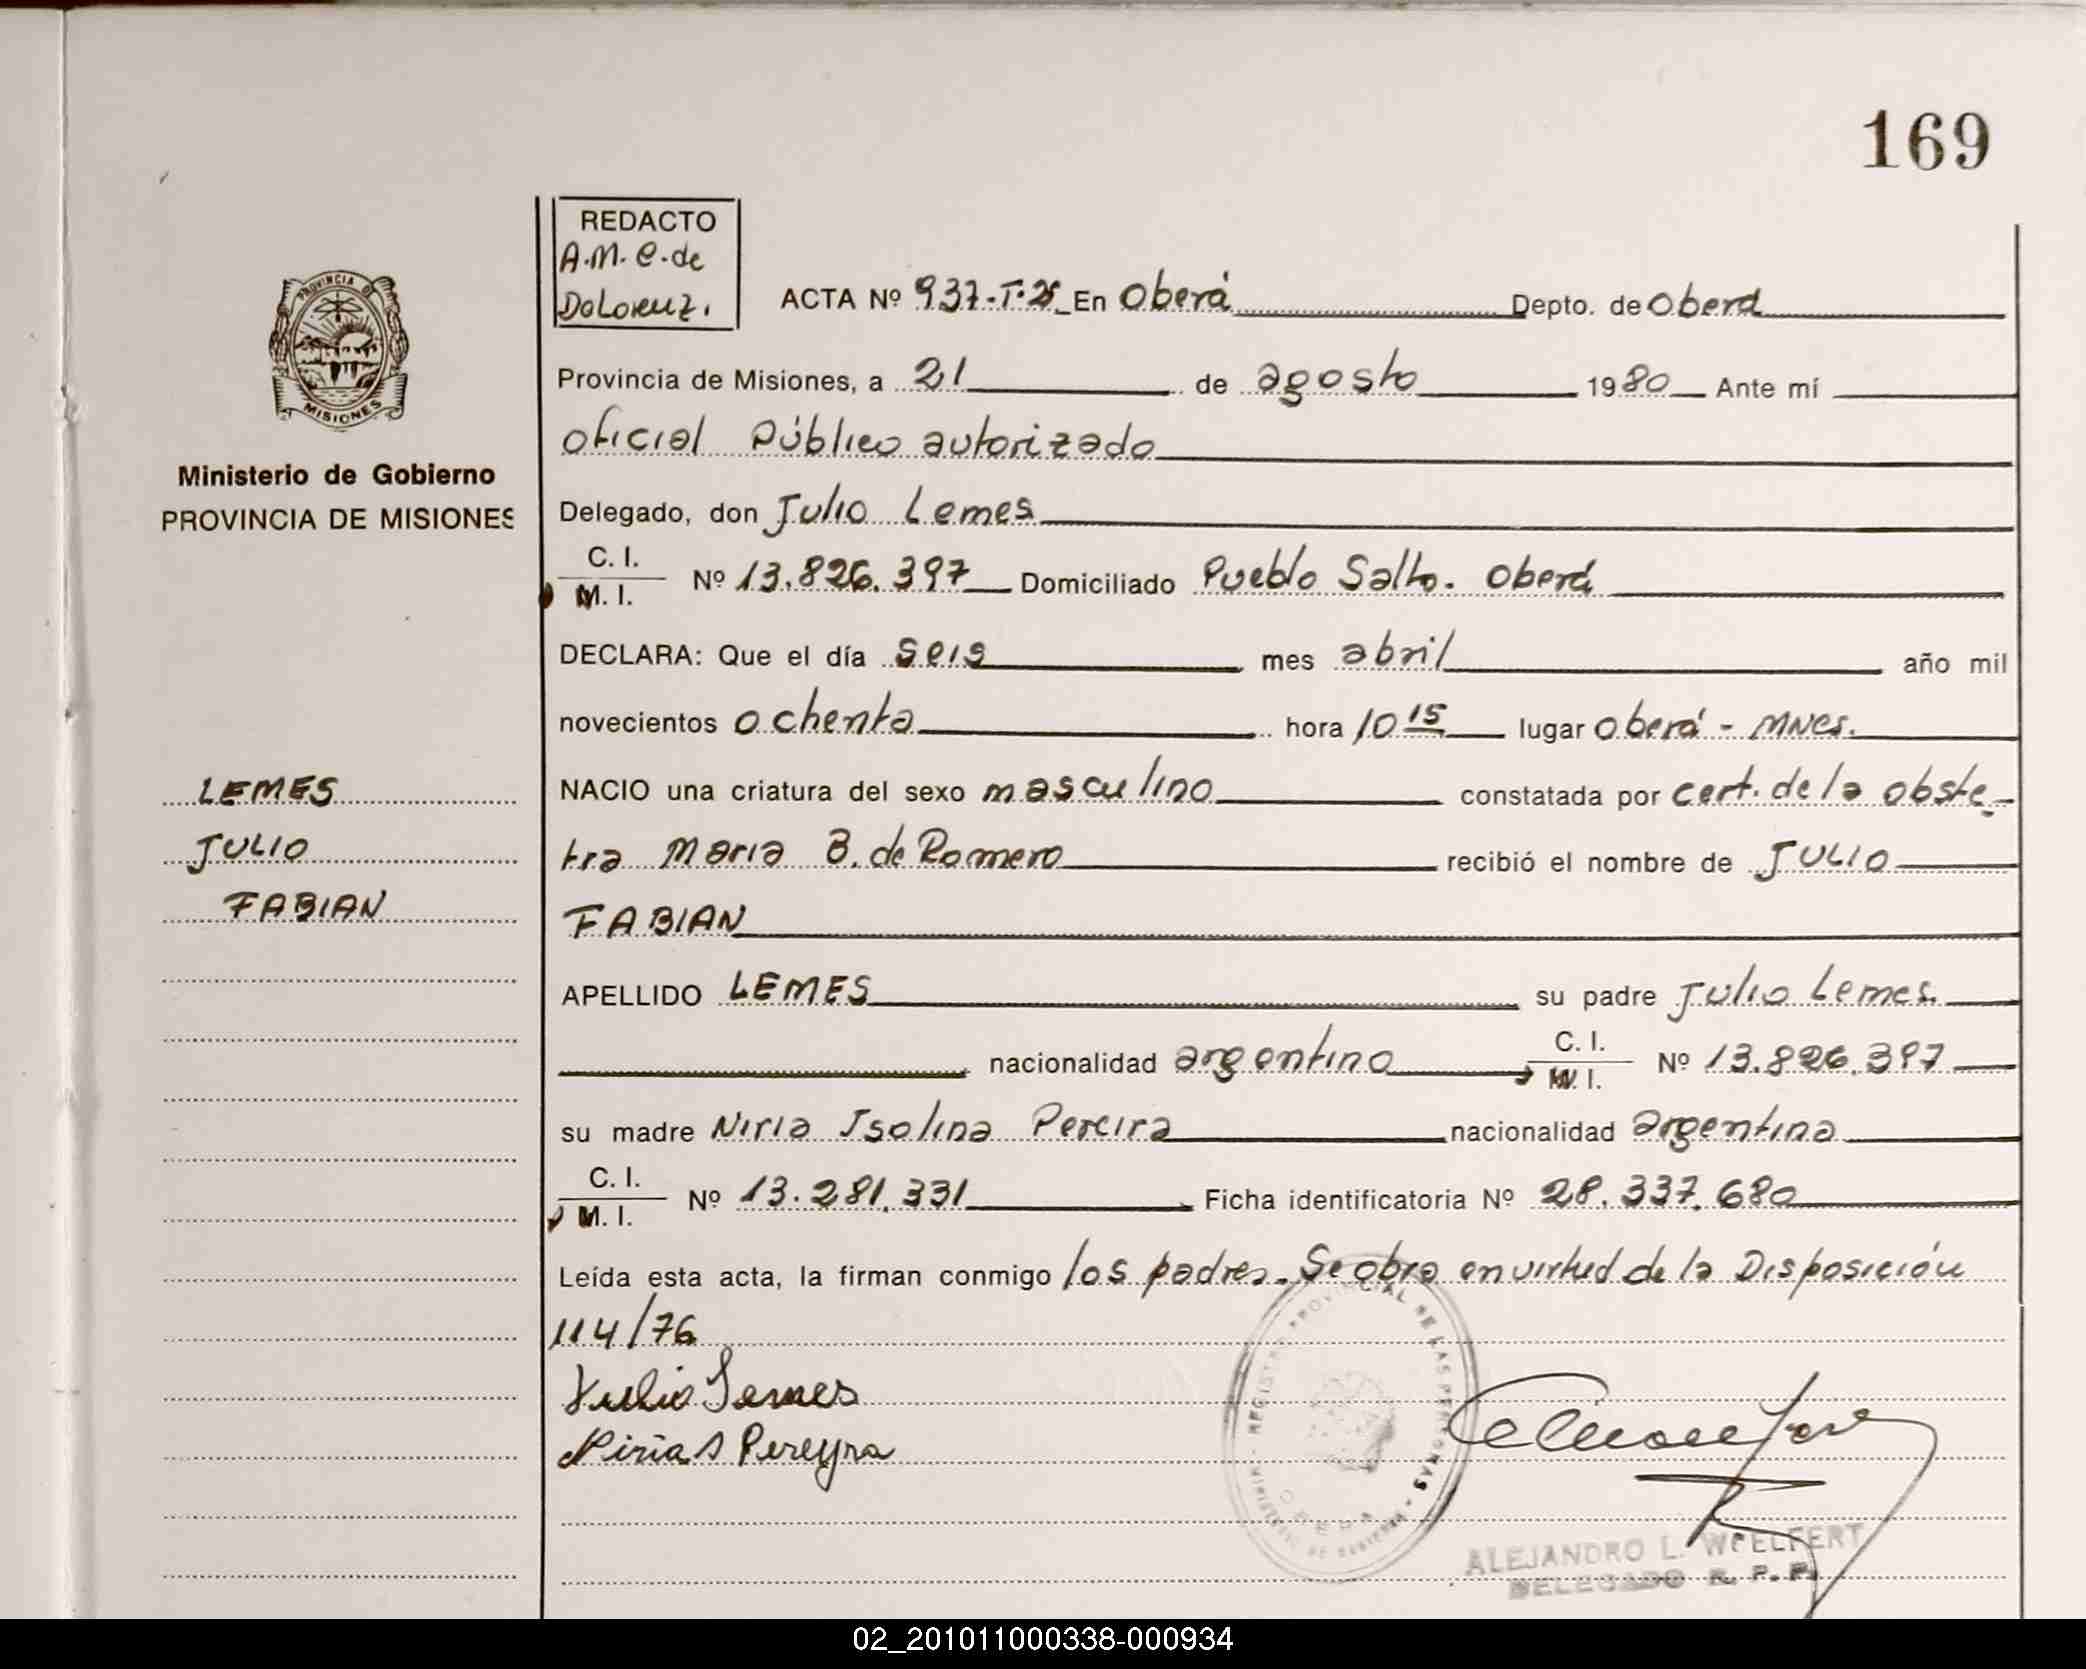 169
REDACTO
A.M.C. de
DaLorenz.
PROVINCIA DE
MISIONES
Ministerio de Gobierno
PROVINCIA DE MISIONES
LEMES
JULIO
FABIAN
ACTA Nº 937-T·25 En Oberá Depto. de Oberá
Provincia de Misiones, a 21 de agosto 1980 Ante mí
oficial Público autorizado
Delegado, don Julio Lemes
C. I.
M. I. Nº 13.826.397 Domiciliado Pueblo Salto. Oberá
DECLARA: Que el día seis mes abril año mil
novecientos ochenta hora 10 15 lugar Oberá - MNES.
NACIO una criatura del sexo masculino constatada por cert. de la obste-
tra Maria B. de Romero recibió el nombre de JULIO
FABIAN
APELLIDO LEMES su padre Julio Lemes.
nacionalidad argentino C. I.
M. I. Nº 13.826.397
su madre Niria Isolina Pereira nacionalidad argentina
C. I.
M. I. Nº 13.281.331 Ficha identificatoria Nº 28.337.680
Leída esta acta, la firman conmigo los padres. Se obra en virtud de la Disposición
114/76
Julio Lemes
Niria I Pereyra
REGISTRO PROVINCIAL DE LAS PERSONAS - MINISTERIO DE GOBIERNO
OBERA
ALEJANDRO L. WOELFERT
DELEGADO R. P. P.
02_201011000338-000934